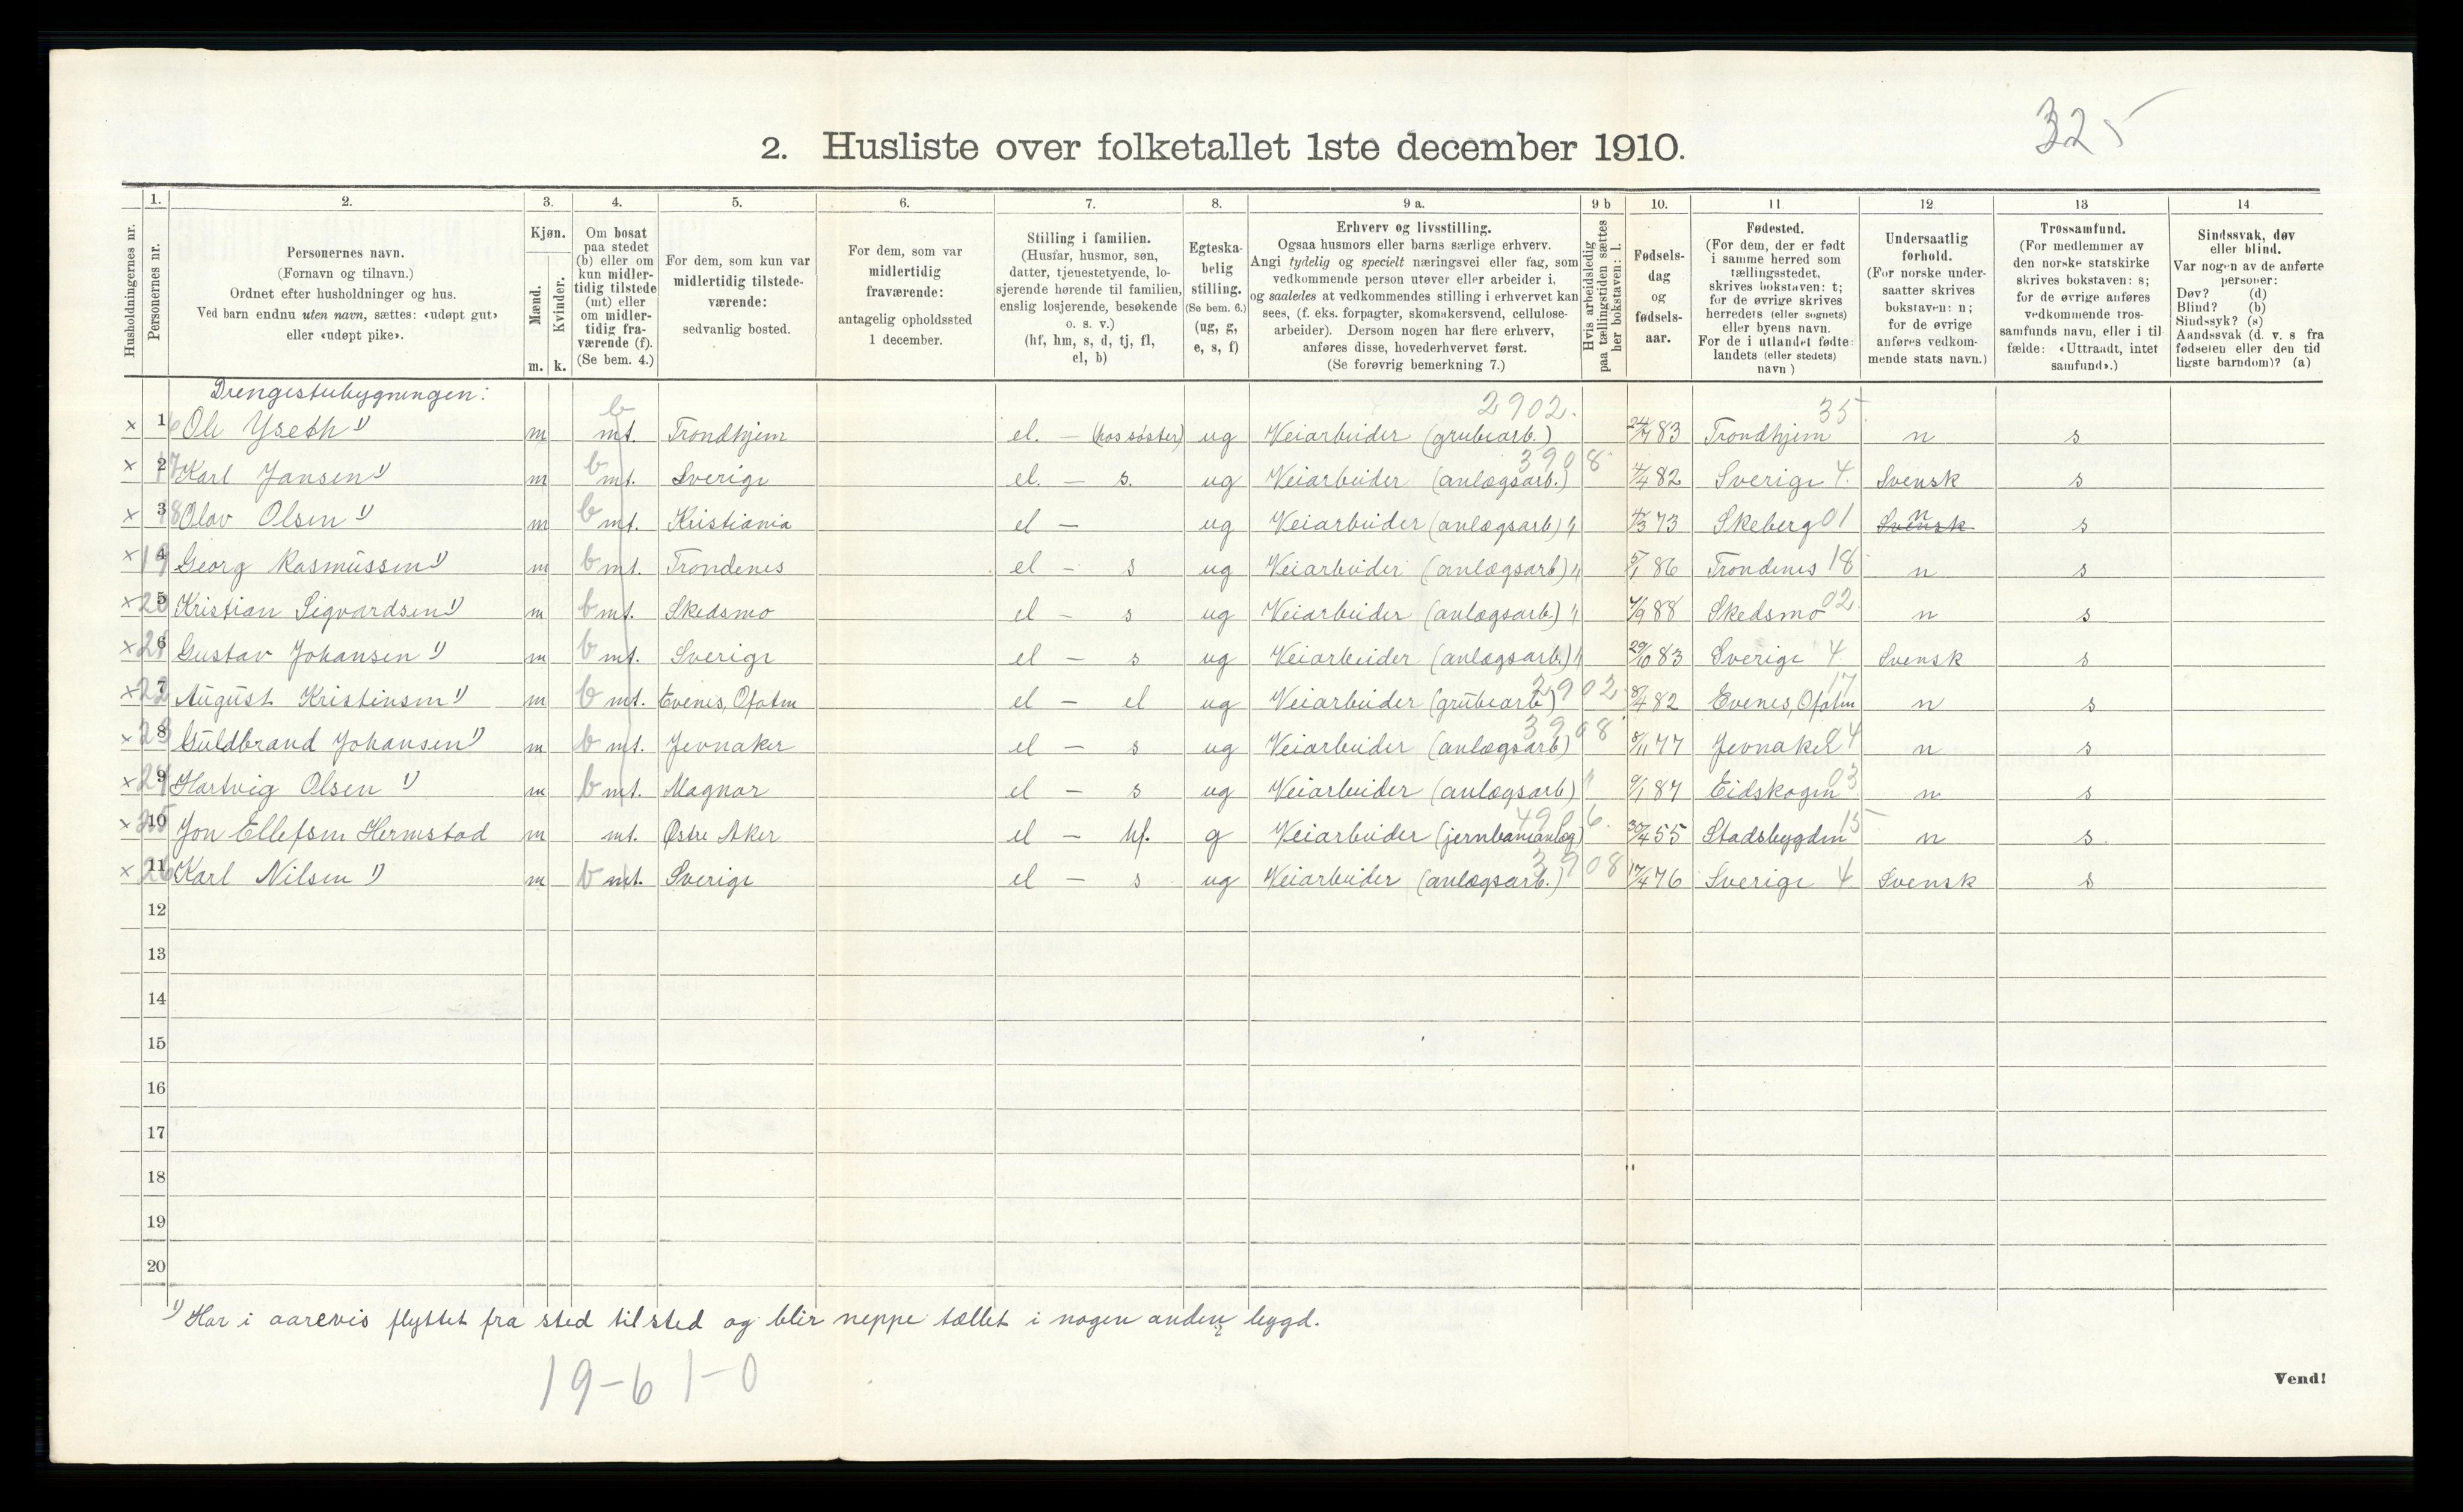 325
2. Husliste over folketallet 1ste december 1910.
Husholdningernes nr.
1.
Personernes nr.
2.
Personernes navn.
(Fornavn og tilnavn.)
Ordnet efter husholdninger og hus.
Ved barn endnu uten navn, sættes: «udøpt gut»
eller «udøpt pike».
3.
Kjøn.
Mænd.
Kvinder.
m. k.
4.
Om bosat
paa stedet
(b) eller om
kun midler-
tidig tilstede
(mt) eller
om midler-
tidig fra-
værende (f).
(Se bem. 4.)
5.
For dem, som kun var
midlertidig tilstede-
værende:
sedvanlig bosted.
6.
For dem, som var
midlertidig
fraværende:
antagelig opholdssted
1 december.
7.
Stilling i familien.
(Husfar, husmor, søn,
datter, tjenestetyende, lo-
sjerende hørende til familien,
enslig losjerende, besøkende
o. s. v.)
(hf, hm, s, d, tj, fl,
el, b)
8.
Egteska-
belig
stilling.
(Se bem. 6.)
(ug, g,
e, s, f)
9 a.
Erhverv og livsstilling.
Ogsaa husmors eller barns særlige erhverv.
Angi tydelig og specielt næringsvei eller fag, som
vedkommende person utøver eller arbeider i,
og saaledes at vedkommendes stilling i erhvervet kan
sees, (f. eks. forpagter, skomakersvend, cellulose-
arbeider). Dersom nogen har flere erhverv,
anføres disse, hovederhvervet først.
(Se forøvrig bemerkning 7.)
9 b
Hvis arbeidsledig
paa tællingstiden sættes
her bokstaven: l.
10.
Fødsels-
dag
og
fødsels-
aar.
11
Fødested.
(For dem, der er født
i samme herred som
tællingsstedet,
skrives bokstaven: t;
for de øvrige skrives
herredets (eller sognets)
eller byens navn.
For de i utlandet fødte:
landets (eller stedets)
navn)
12
Undersaatlig
forhold.
(For norske under-
saatter skrives
bokstaven: n;
for de øvrige
anføres vedkom-
mende stats navn.)
13
Trossamfund.
(For medlemmer av
den norske statskirke
skrives bokstaven: s;
for de øvrige anføres
vedkommende tros-
samfunds navn, eller i til-
fælde: «Uttraadt, intet
samfund».)
14
Sindssvak, døv
eller blind.
Var nogen av de anførte
personer:
Døv? (d)
Blind? (b)
Sindssyk? (s)
Aandssvak (d. v. s fra
fødselen eller den tid
ligste barndom)? (a)
Drengestubygningen:
b 2902. 35
x 1 Ole Yseth 1) m mt. Trondhjem el. - (hos søster) ug Veiarbeider (grubearb.) 83 Trondhjem n s
3908
x 2 17 Karl Jansen 1) m b mt. Sverige el. - s. ug Veiarbeider (anlægsarb.) 4/4 82 Sverige 4. Svensk s
x 3 18 Olav Olsen 1) m b mt. Kristiania el - ug Veiarbeider (anlægsarb) " 4/3 73 Skeberg 01 Svensk n s
x 4 19 Georg Rasmussen 1) m b mt. Trondenes el - s ug Veiarbeider (anlægsarb) " 5/1 86 Trondenes 18 n s
x 5 20 Kristian Sigvardsen 1) m b mt. Skedsmo el - s ug Veiarbeider (anlægsarb.) " 4/9 88 Skedsmo 02 n s
x 6 21 Gustav Johansen 1) m b mt. Sverige el - s ug Veiarbeider (anlægsarb.) " 29/10 83 Sverige 4 Svensk s
x 7 22 August Kristinsen 1) m b mt. Evenes, Ofoten el - el ug Veiarbeider (grubearb) 2902 8/4 82 Evenes, Ofoten 17 n s
x 8 23 Guldbrand Johansen 1) m b mt. Jevnaker el - s ug Veiarbeider (anlægsarb) 3908 8/11 77 Jevnaker 04 n s
x 9 24 Hartvig Olsen 1) m b mt. Magnor el - s ug Veiarbeider (anlægsarb) " 9/1 87 Eidskogen 03 n s
x 10 25 Jon Ellefsen Hermstad m mt. Østre Aker el - hf. g Veiarbeider (jernbaneanlæg) 4906. 30/4 55 Stadsbygden 15 n s.
x 11 26 Karl Nilsen 1) m b mt. Sverige el - s ug Veiarbeider (anlægsarb.) 3908 17/4 76 Sverige 4 Svensk s
12
13
14
15
16
17
18
19
20
1) Har i aarevis flyttet fra sted til sted og blir neppe tællet i nogen anden bygd.
19-6 1-0
Vend!